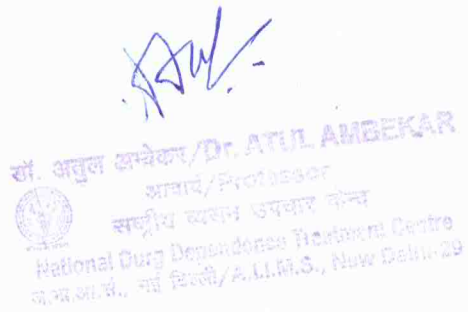 डॉ. अतुल अम्बेकर/Dr. ATUL AMBEKAR
आचार्य/Professor
राष्ट्रीय व्यसन उपचार केन्द्र
National Durg Dependence Treatment Centre
अ.भा.आ.सं., नई दिल्ली/A.I.I.M.S., New Delhi-29